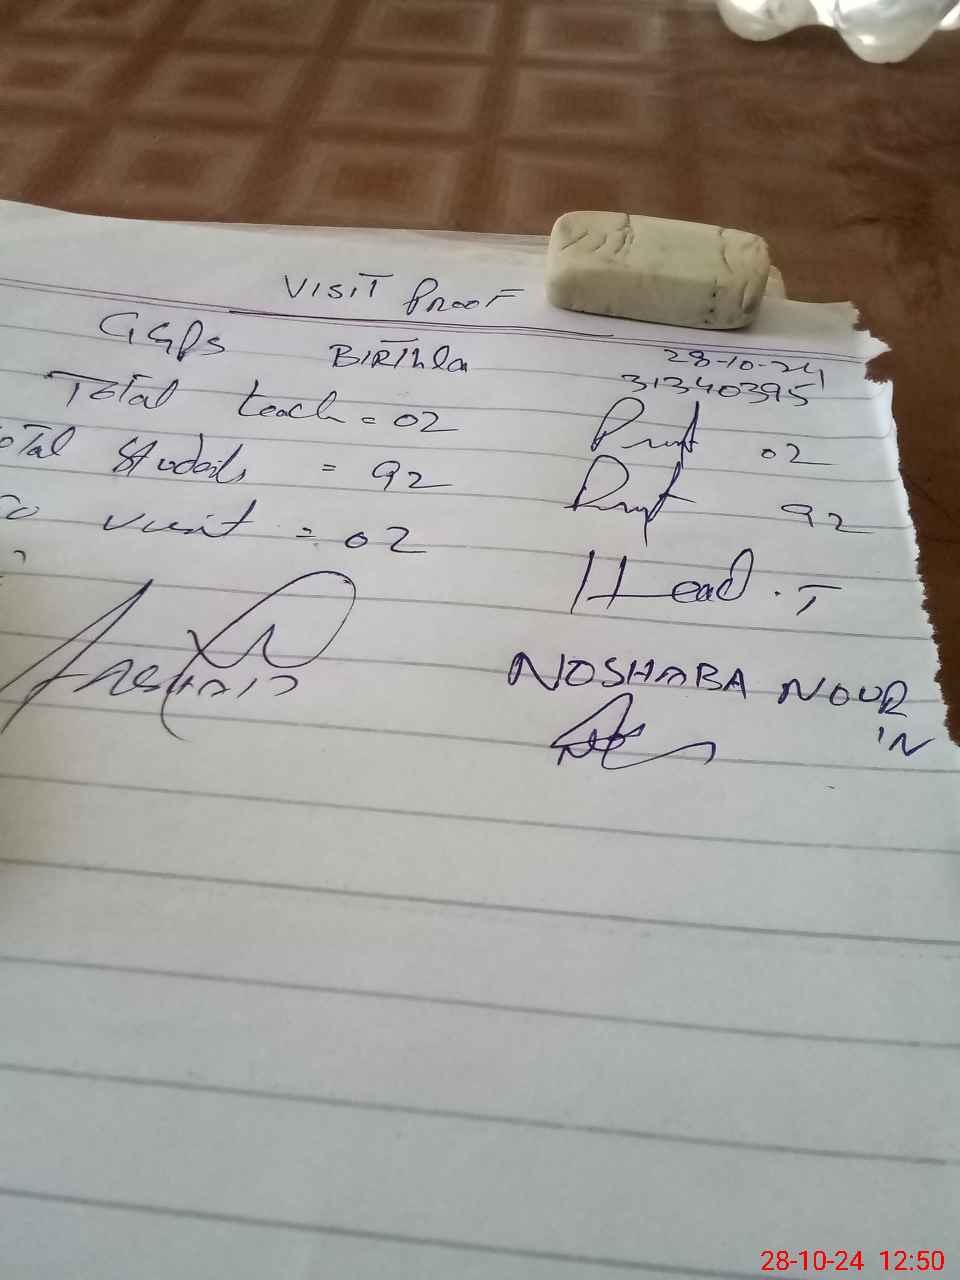 VISIT Proof
GGPS BIRTHla 28-10-24
31340395
Total teach = 02 Prest 02
otal Students = 92 Prest 92
co visit = 02
Head . T
NOSHABA NOUR
IN
28-10-24 12:50